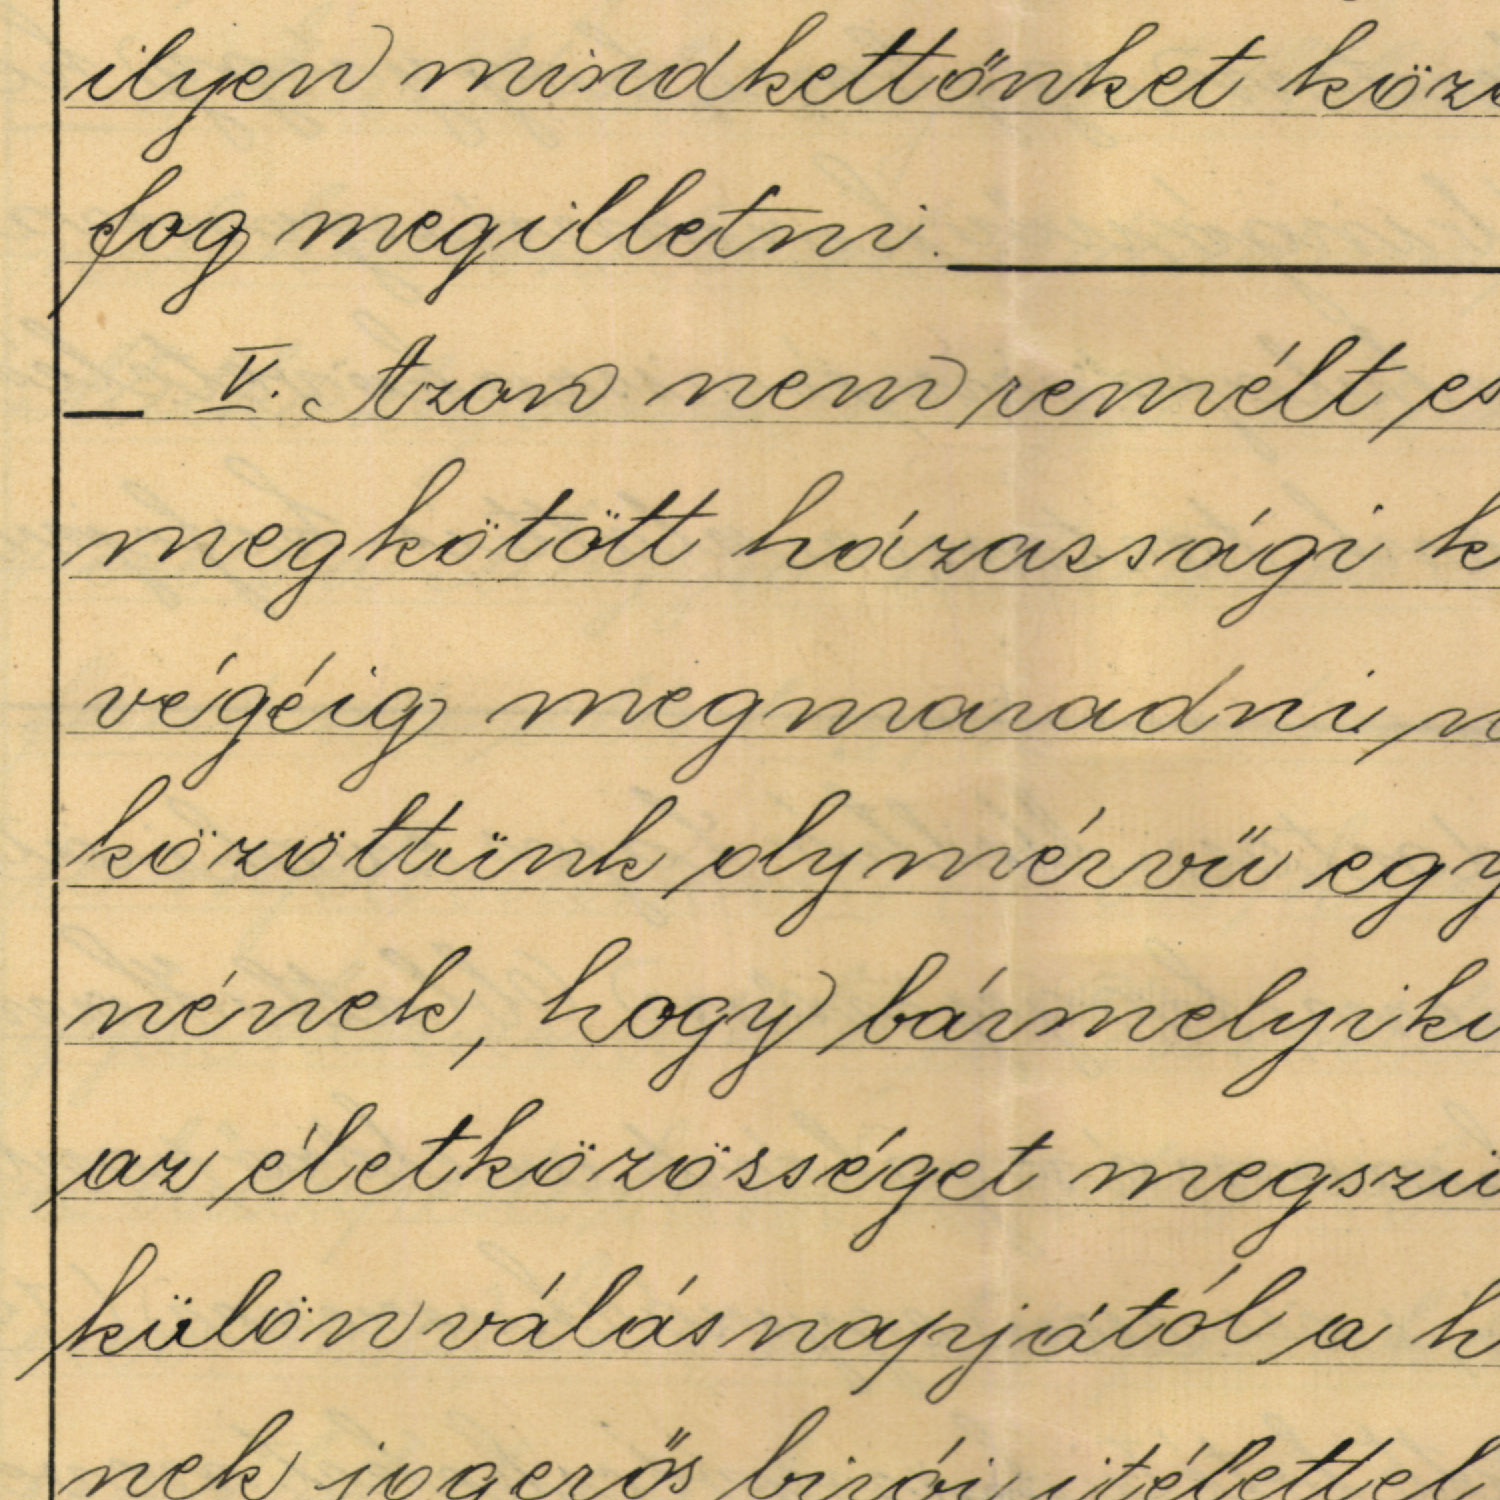 ilyen mindkettőnket köz
fog megillettni.
V. Azon nem remélt es
megkötött házassági k
végéig megmaradni n
közöttünk oly mérvű egy
nének, hogy bármelyikü
az életközösséget megszü
különválás napjától a h
nek jogerős birói itélettel